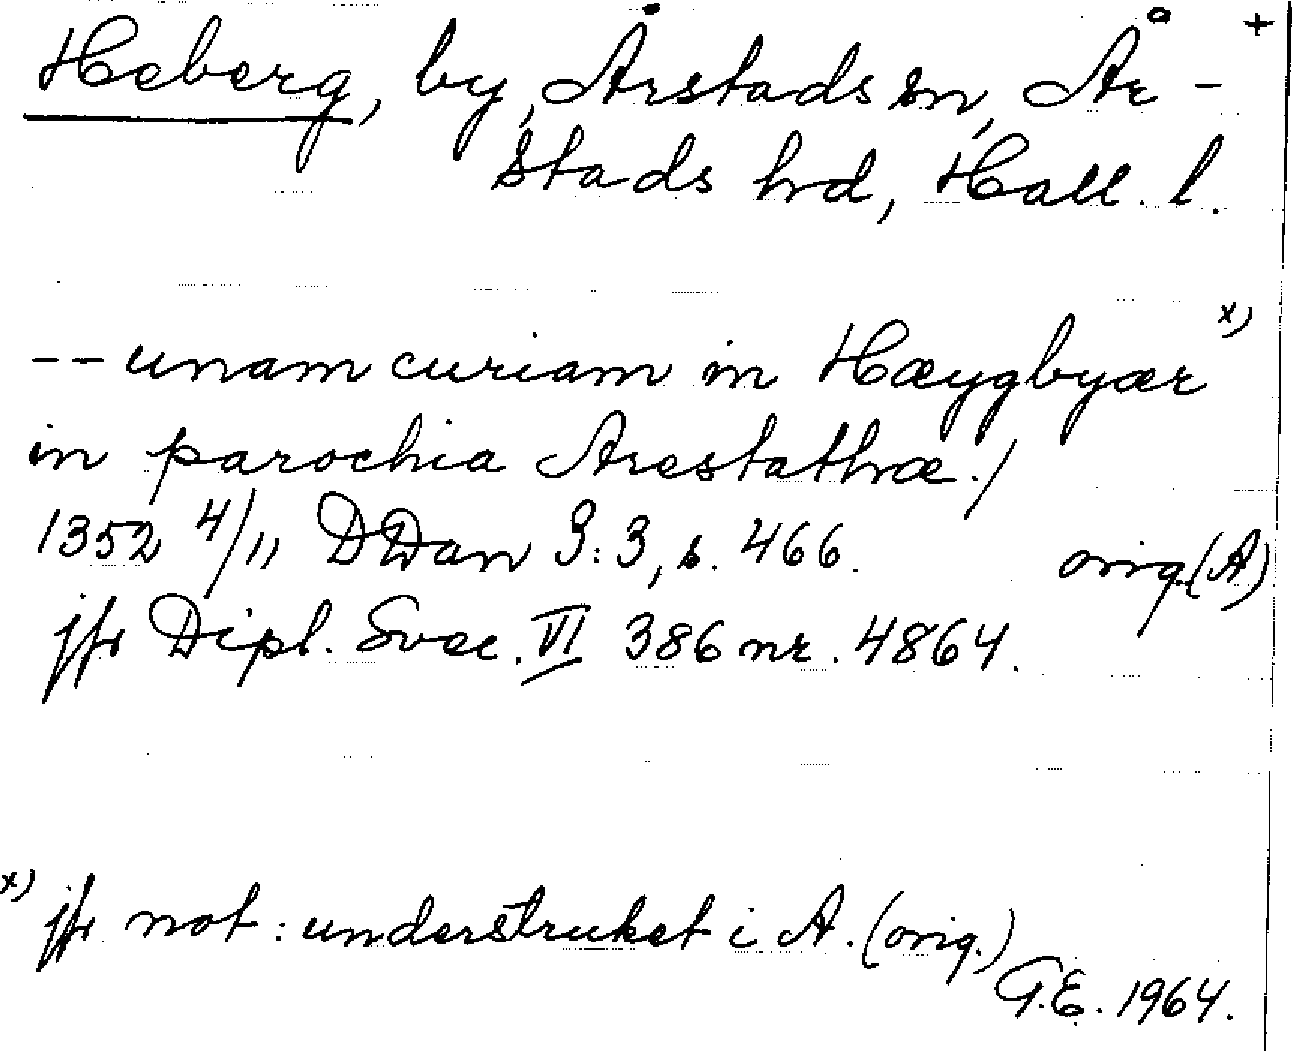 Heberg, by, Årstads sn, År- +
stads hrd, Hall. l.
-- unam curiam in Hæygbyær x)
in parochia Arestathræ./
1352 4/11 DDan 3:3, s. 466. orig.(A)
jfr Dipl. Svec. VI 386 nr. 4864.
x) jfr not: understruket i A. (orig.)
G.E. 1964.